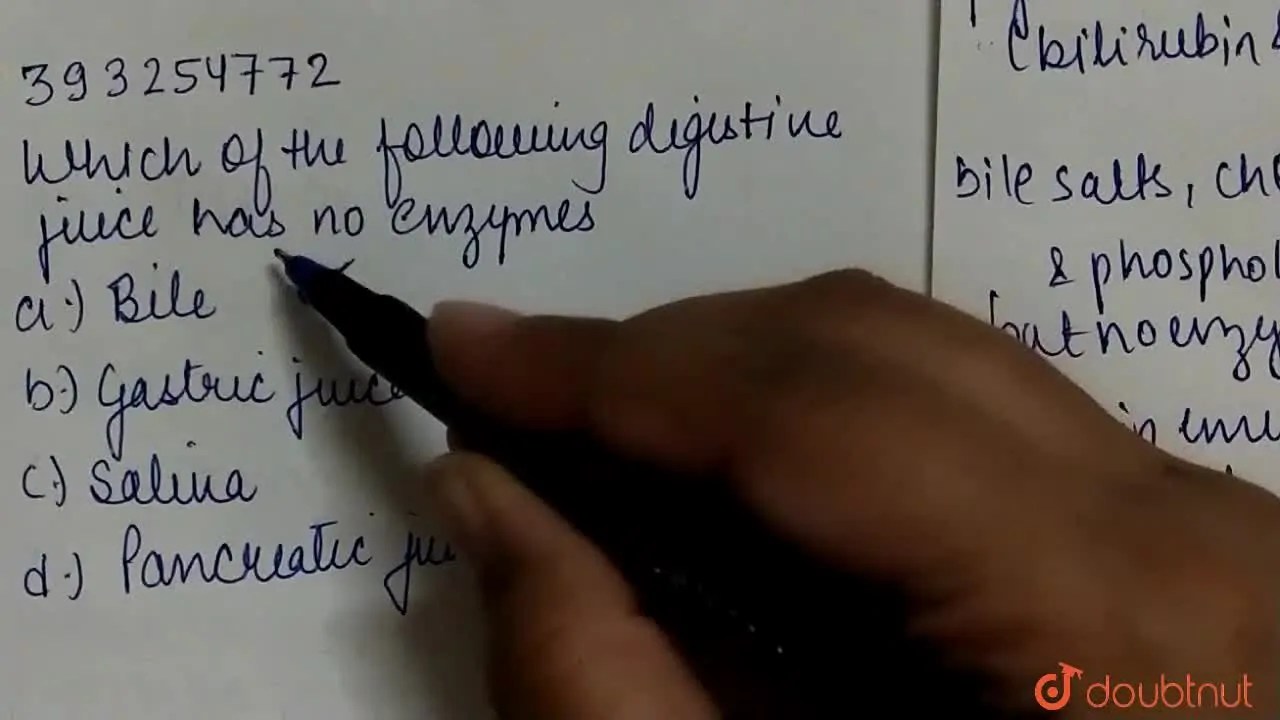 393254772
Which of the following digestive
juice has no enzymes
a.) Bile
b.) Gastric juice
c.) Saliva
d.) Pancreatic
(bilirubin &
bile salts,
& phosphol
but no enzy
in emu
doubtnut